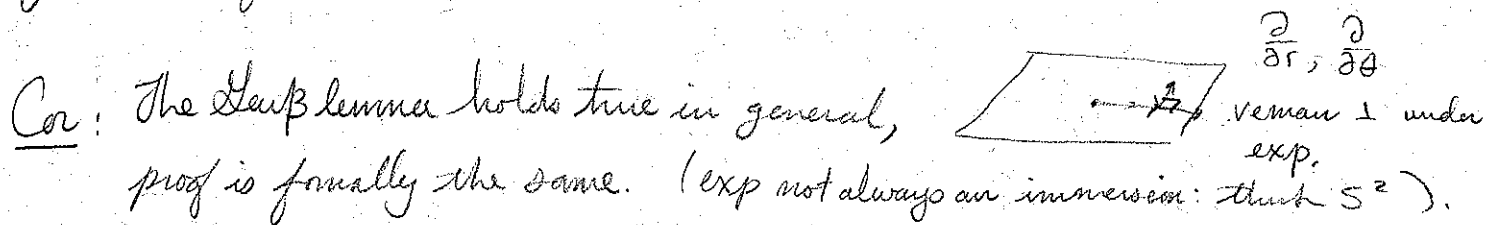 ∂/∂r, ∂/∂θ
Cor: The Gauß lemma holds true in general, remain ⊥ under
exp.
proof is formally the same. (exp not always an immersion: think S²).